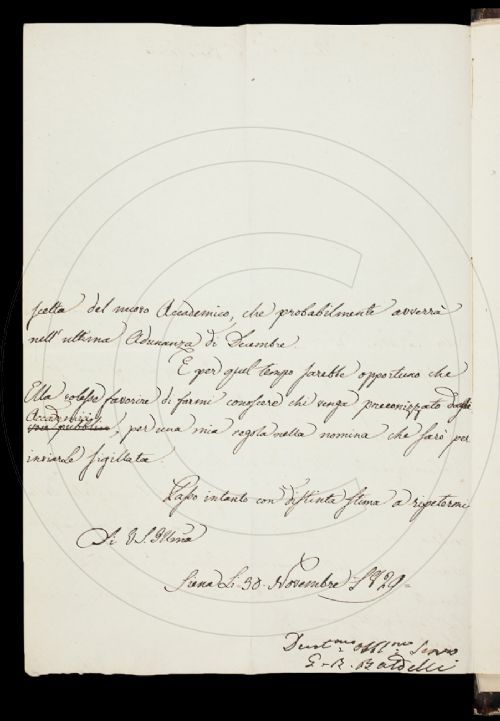 scelta del nuovo Accademico, che probabilmente avverrà
nell'ultima Adunanza di Decembre
E per quel tempo sarebbe opportuno che
Ella volesse favorire di farmi conoscere chi venga preconizzato dagli
Accademici
voce pubblica; per una mia regola nella nomina che farò per
inviarle sigillata
Passo intanto con distinta stima a ripetermi
Di V.S. Illma
Siena Li 30 Novembre 1829
Devotmo obblmo Servo
G. B. Baldelli